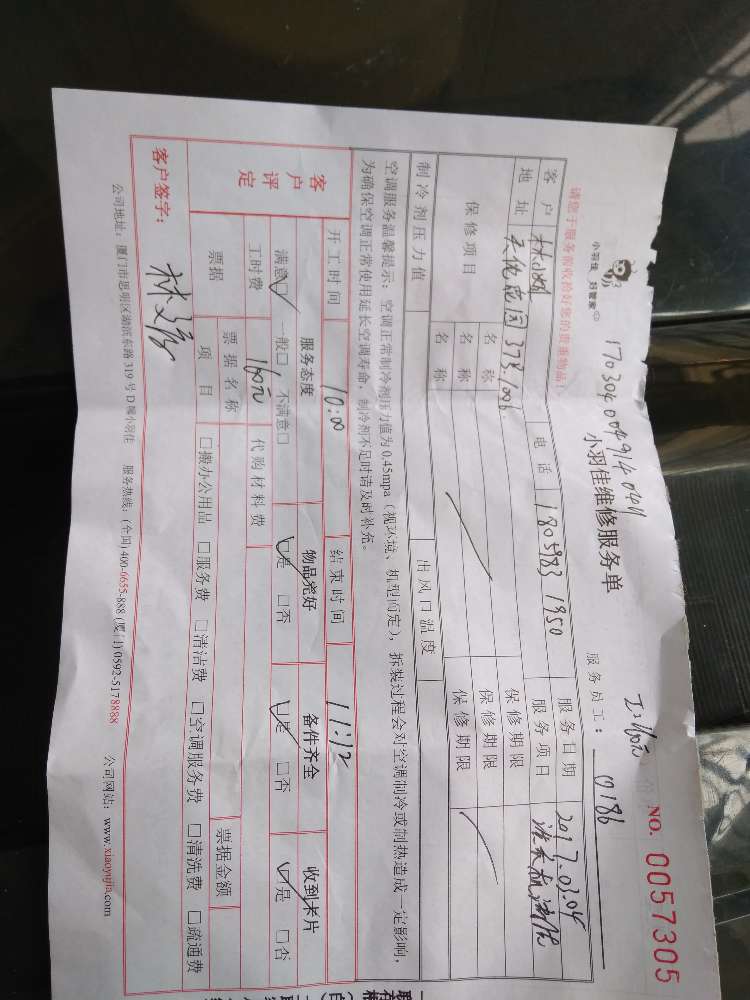 小羽佳 好管家
17030400491404
NO. 0057305
小羽佳维修服务单
服务员工: 0186
请您于服务前收拾好您的贵重物品!
客户 电话 1805983 1950 服务日期 2017.03.04
地址 373.1006 服务项目
保修项目 名称 保修期限
名称 保修期限
名称 保修期限
制冷剂压力值 出风口温度
空调服务温馨提示: 空调正常制冷剂压力值为0.45mpa (视环境、机型而定), 拆装过程会对空调制冷或制热造成一定影响,
为确保空调正常使用延长空调寿命, 制冷剂不足时请及时补充。
开工时间 10:00 结束时间 11:12
客户评定 服务态度 物品完好 备件齐全 收到卡片
满意☑ 一般□ 不满意□ ☑是 □否 ☑是 □否 ☑是 □否
工时费 160元 代购材料费
票据 票据名称 票据金额
项目 □搬办公用品 □服务费 □清洁费 □空调服务费 □清洗费 □疏通费
客户签字:
公司地址: 厦门市思明区湖滨东路319号D幢小羽佳 服务热线: (全国)400-0655-888 (厦门)0592-5178888 公司网站: www.xiaoyujia.com